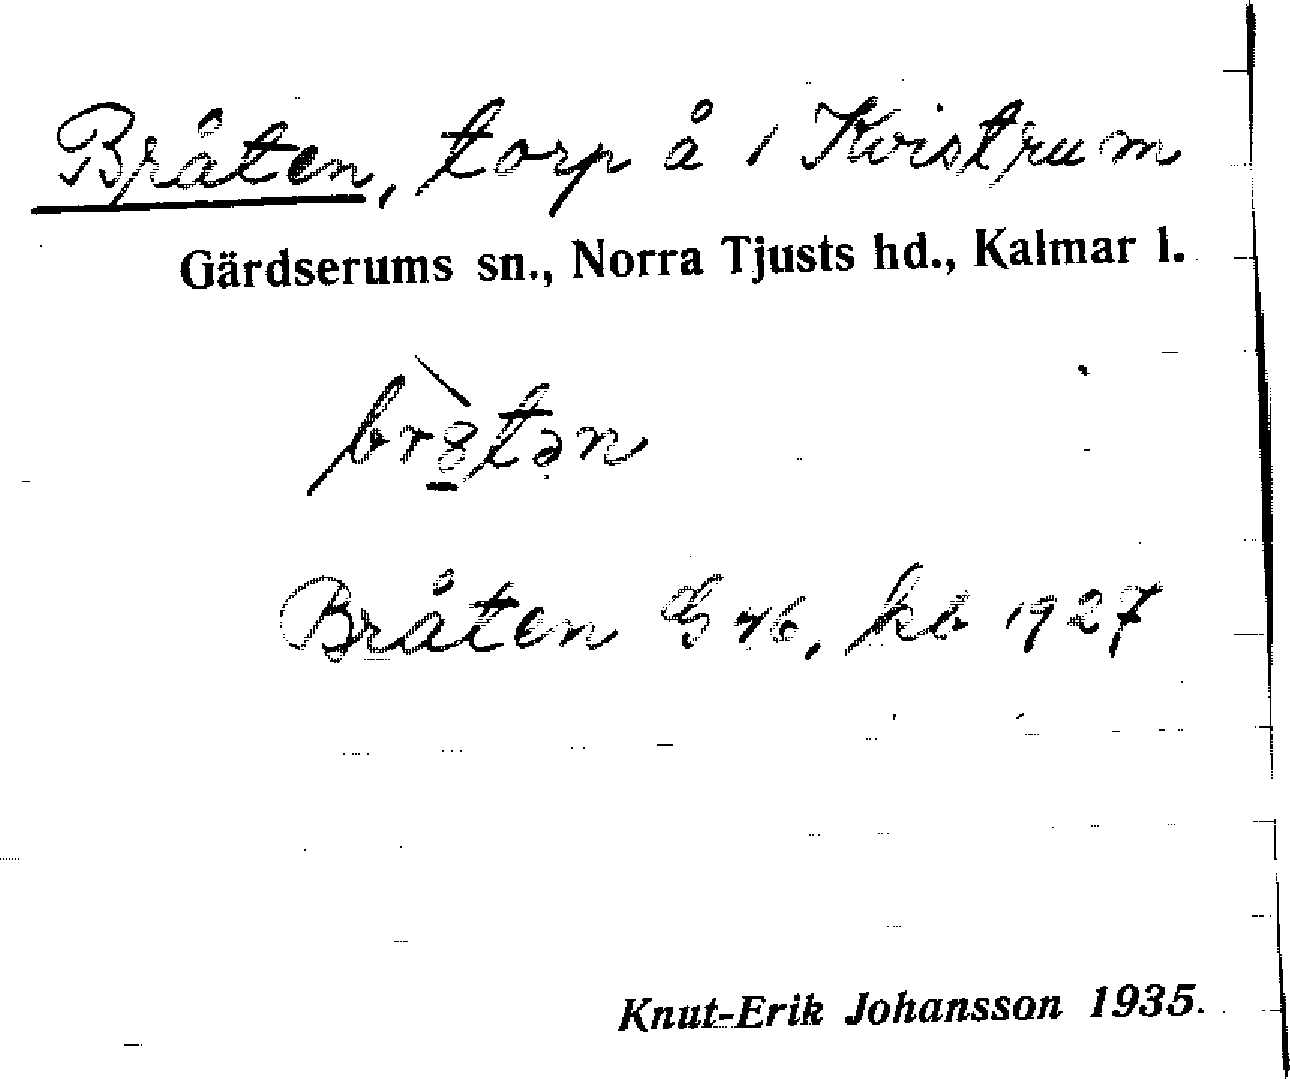 Bråten, torp å 1 Kvistrum
Gärdserums sn., Norra Tjusts hd., Kalmar l.
Bråten G 46, kb 1927
Knut-Erik Johansson 1935.